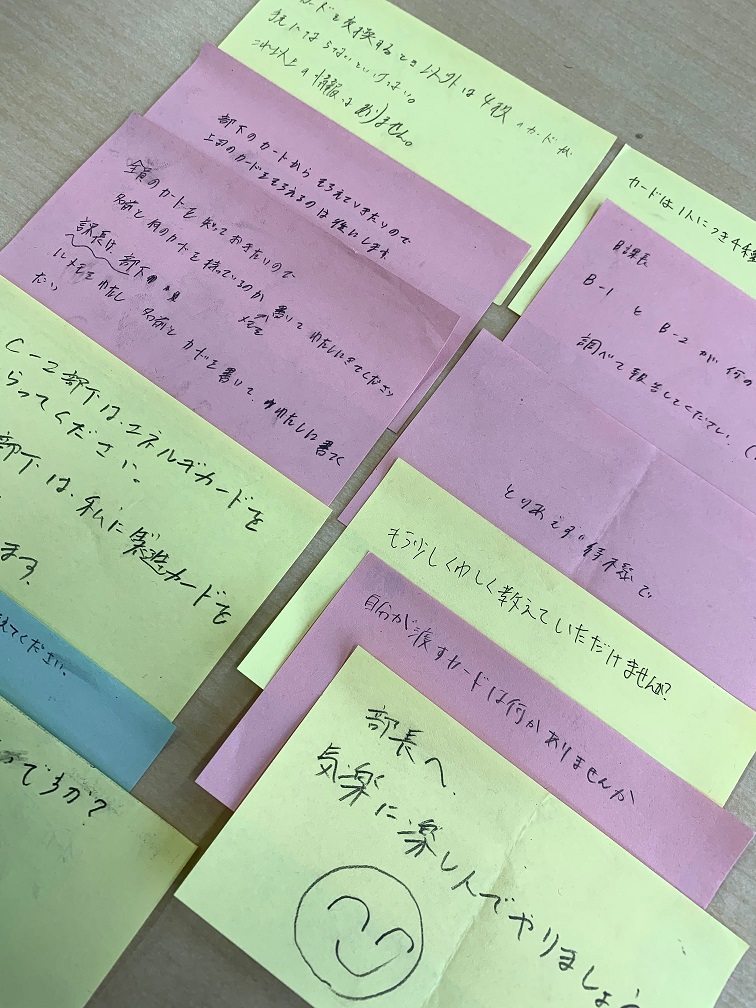 カードを交換するとき以外は4枚のカードが
手元になければいけない。
これ以上の情報はありません。
部下のカードからそろえていきたいので
上司のカードをそろえるのは後にします
全員のカードを知っておきたいので
名前と何のカードを持っているのか 書いて わたしにきてください
メモを
課長は 部下
にメモをわたし 名前と カードを書いて、わたしに書く
だい
C-2部下は、エネルギカードを
らってください。
部下は、私に製造カードを
ます。
えてください。
ってるか?
カードは1人につき4種
B課長
B-1 と B-2 が 何の
調べて報告してください。(
とりあえず 待不思で
もう少しくわしく教えていただけませんか?
自分が渡すカードは何かありませんか
部長へ.
気楽に楽しんでやりましょう